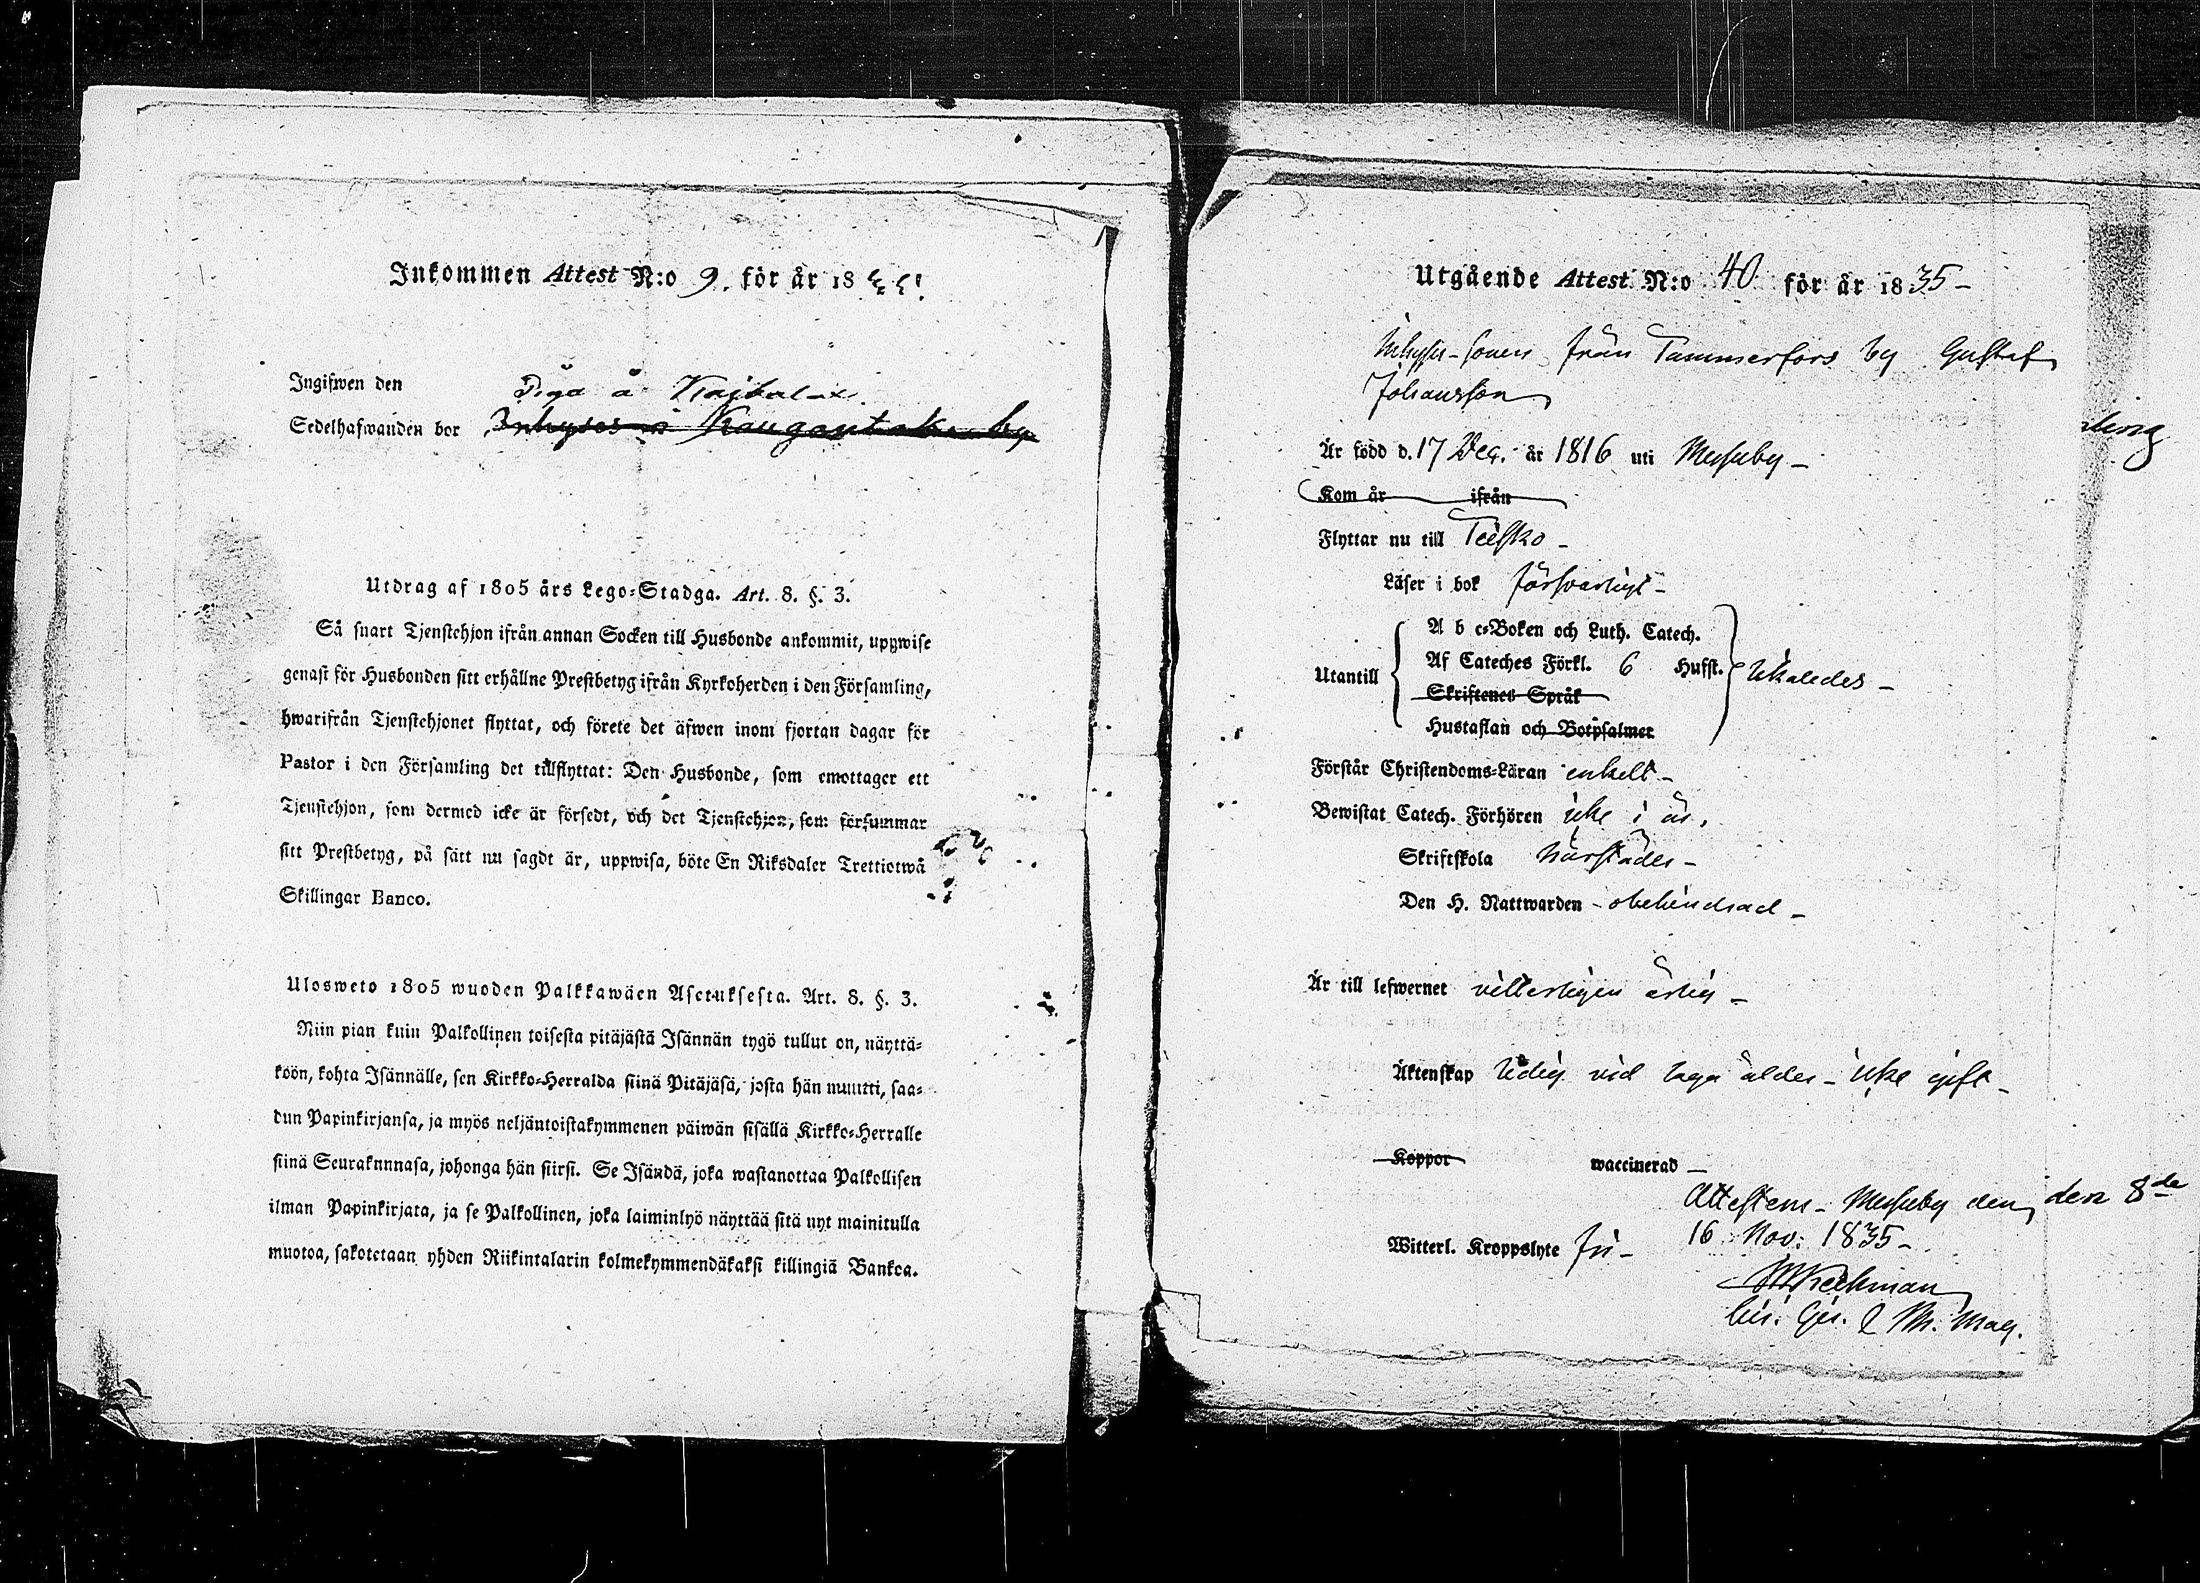 Inkommen Attest N:o 9. för år 18
Ingifwen den
Piga å
Sedelhafwanden bor Inhyses å Kaugantaka by
Utdrag af 1805 års Lego-Stadga. Art. 8. §. 3.
Så snart Tjenstehjon ifrån annan Socken till Husbonde ankommit, uppwise
genast för Husbonden sitt erhållne Prestbetyg ifrån Kyrkoherden i den Församling,
hwarifrån Tjenstehjonet flyttat, och förete det äfwen inom fjortan dagar för
Pastor i den Församling det tillflyttat: Den Husbonde, som emottager ett
Tjenstehjon, som dermed icke är försedt, och det Tjenstehjon, som försummar
sitt Prestbetyg, på sätt nu sagdt är, uppwisa, böte En Riksdaler Trettiotwå
Skillingar Banco.
Ulosweto 1805 wuoden Palkkawäen Asetuksesta. Art. 8. §. 3.
Niin pian kuin Palkollinen toisesta pitäjästä Isännän tygö tullut on, näyttä-
köön, kohta Isännälle, sen Kirkko-Herralda siinä Pitäjäsä, josta hän muutti, saa-
dun Papinkirjansa, ja myös neljäntoistakymmenen päiwän sisällä Kirkko-Herralle
siinä Seuraknnnasa, johonga hän siirsi. Se Isändä, joka wastanottaa Palkollisen
ilman Papinkirjata, ja se Palkollinen, joka laiminlyö näyttää sitä nyt mainitulla
muotoa, sakotetaan yhden Riikintalarin kolmekymmendäkaksi killingiä Bankoa.
Utgående Attest N:o 40 för år 1835-
Inhyses-sonen från Tammerfors by Gustaf
Johansson
Är född d. 17 Dec. år 1816 uti Messuby-
Kom år ifrån
Flyttar nu till Teisko-
Läser i bok försvarligt-
A b c-Boken och Luth. Catech.
Af Cateches Förkl. 6 Hufst.
Utantill likaledes-
Skriftenes Språk
Hustaflan och Botpsalmer
Förstår Christendoms-Läran enkelt-
Bewistat Catech. Förhören icke i år.
Skriftskola härstädes-
Den H. Nattwarden - obehindrad-
Är till lefwernet vitterligen ärlig-
Äktenskap ledig vid laga ålder - icke gift-
Koppor waccinerad-
Attesteras - Messuby den
16 Nov: 1835-
Witterl. Kroppslyte fri-
den 8de